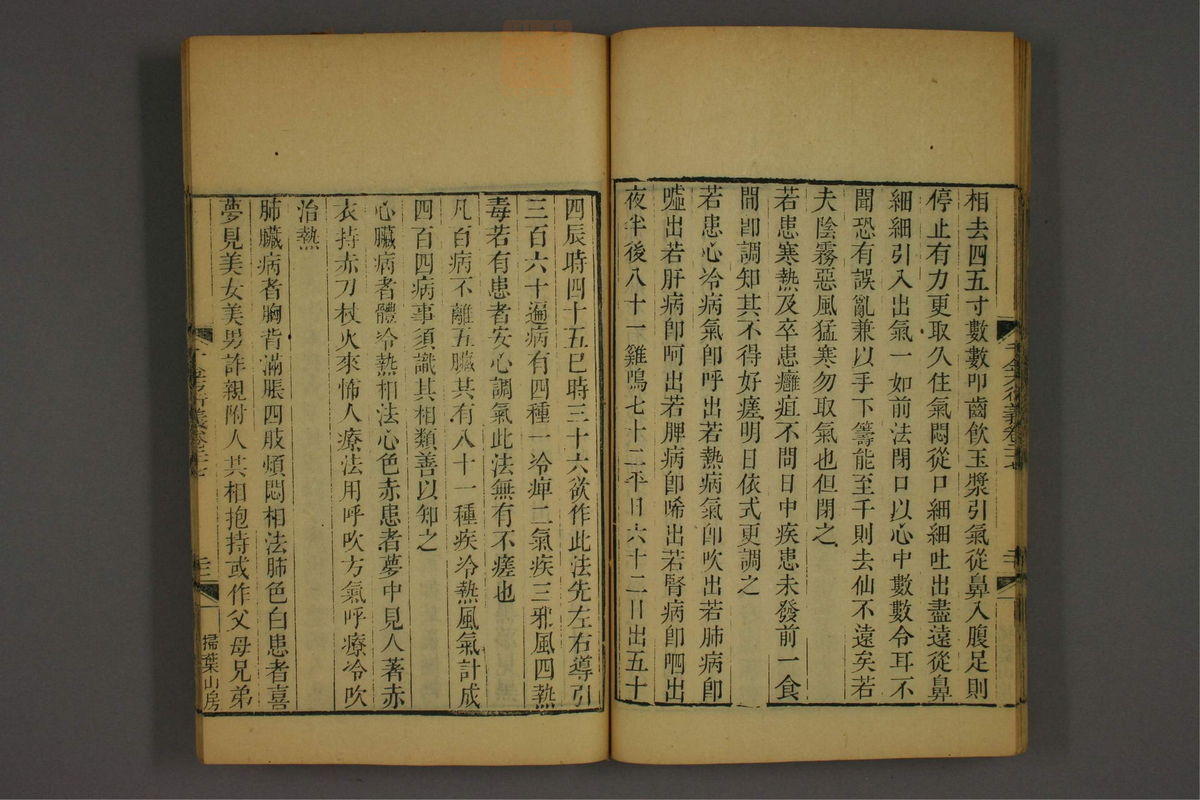 相去四五寸數數叩齒飲玉漿引氣從鼻入腹足則
停止有力更取久住氣悶從口細細吐出盡遠從鼻
細細引入出氣一如前法閉口以心中數數令耳不
聞恐有誤亂兼以手下籌能至千則去仙不遠矣若
夫陰霧惡風猛寒勿取氣也但閉之
若患寒熱及卒患癰疽不問日中疾患未發前一食
間卽調知其不得好瘥明日依式更調之
若患心冷病氣卽呼出若熱病氣卽吹出若肺病卽
噓出若肝病卽呵出若脾病卽唏出若腎病卽呬出
夜半後八十一雞鳴七十二平旦六十三日出五十
四辰時四十五巳時三十六欲作此法先左右導引
三百六十遍病有四種一冷痺二氣疾三邪風四熱
毒若有患者安心調氣此法無有不瘥也
凡百病不離五臟其有八十一種疾冷熱風氣計成
四百四病事須識其相類善以知之
心臟病者體冷熱相法心色赤患者夢中見人著赤
衣持赤刀杖火來怖人療法用呼吹方氣呼療冷吹
治熱
肺臟病者胸背滿脹四肢煩悶相法肺色白患者喜
夢見美女美男詐親附人其相抱持或作父母兄弟
掃葉山房